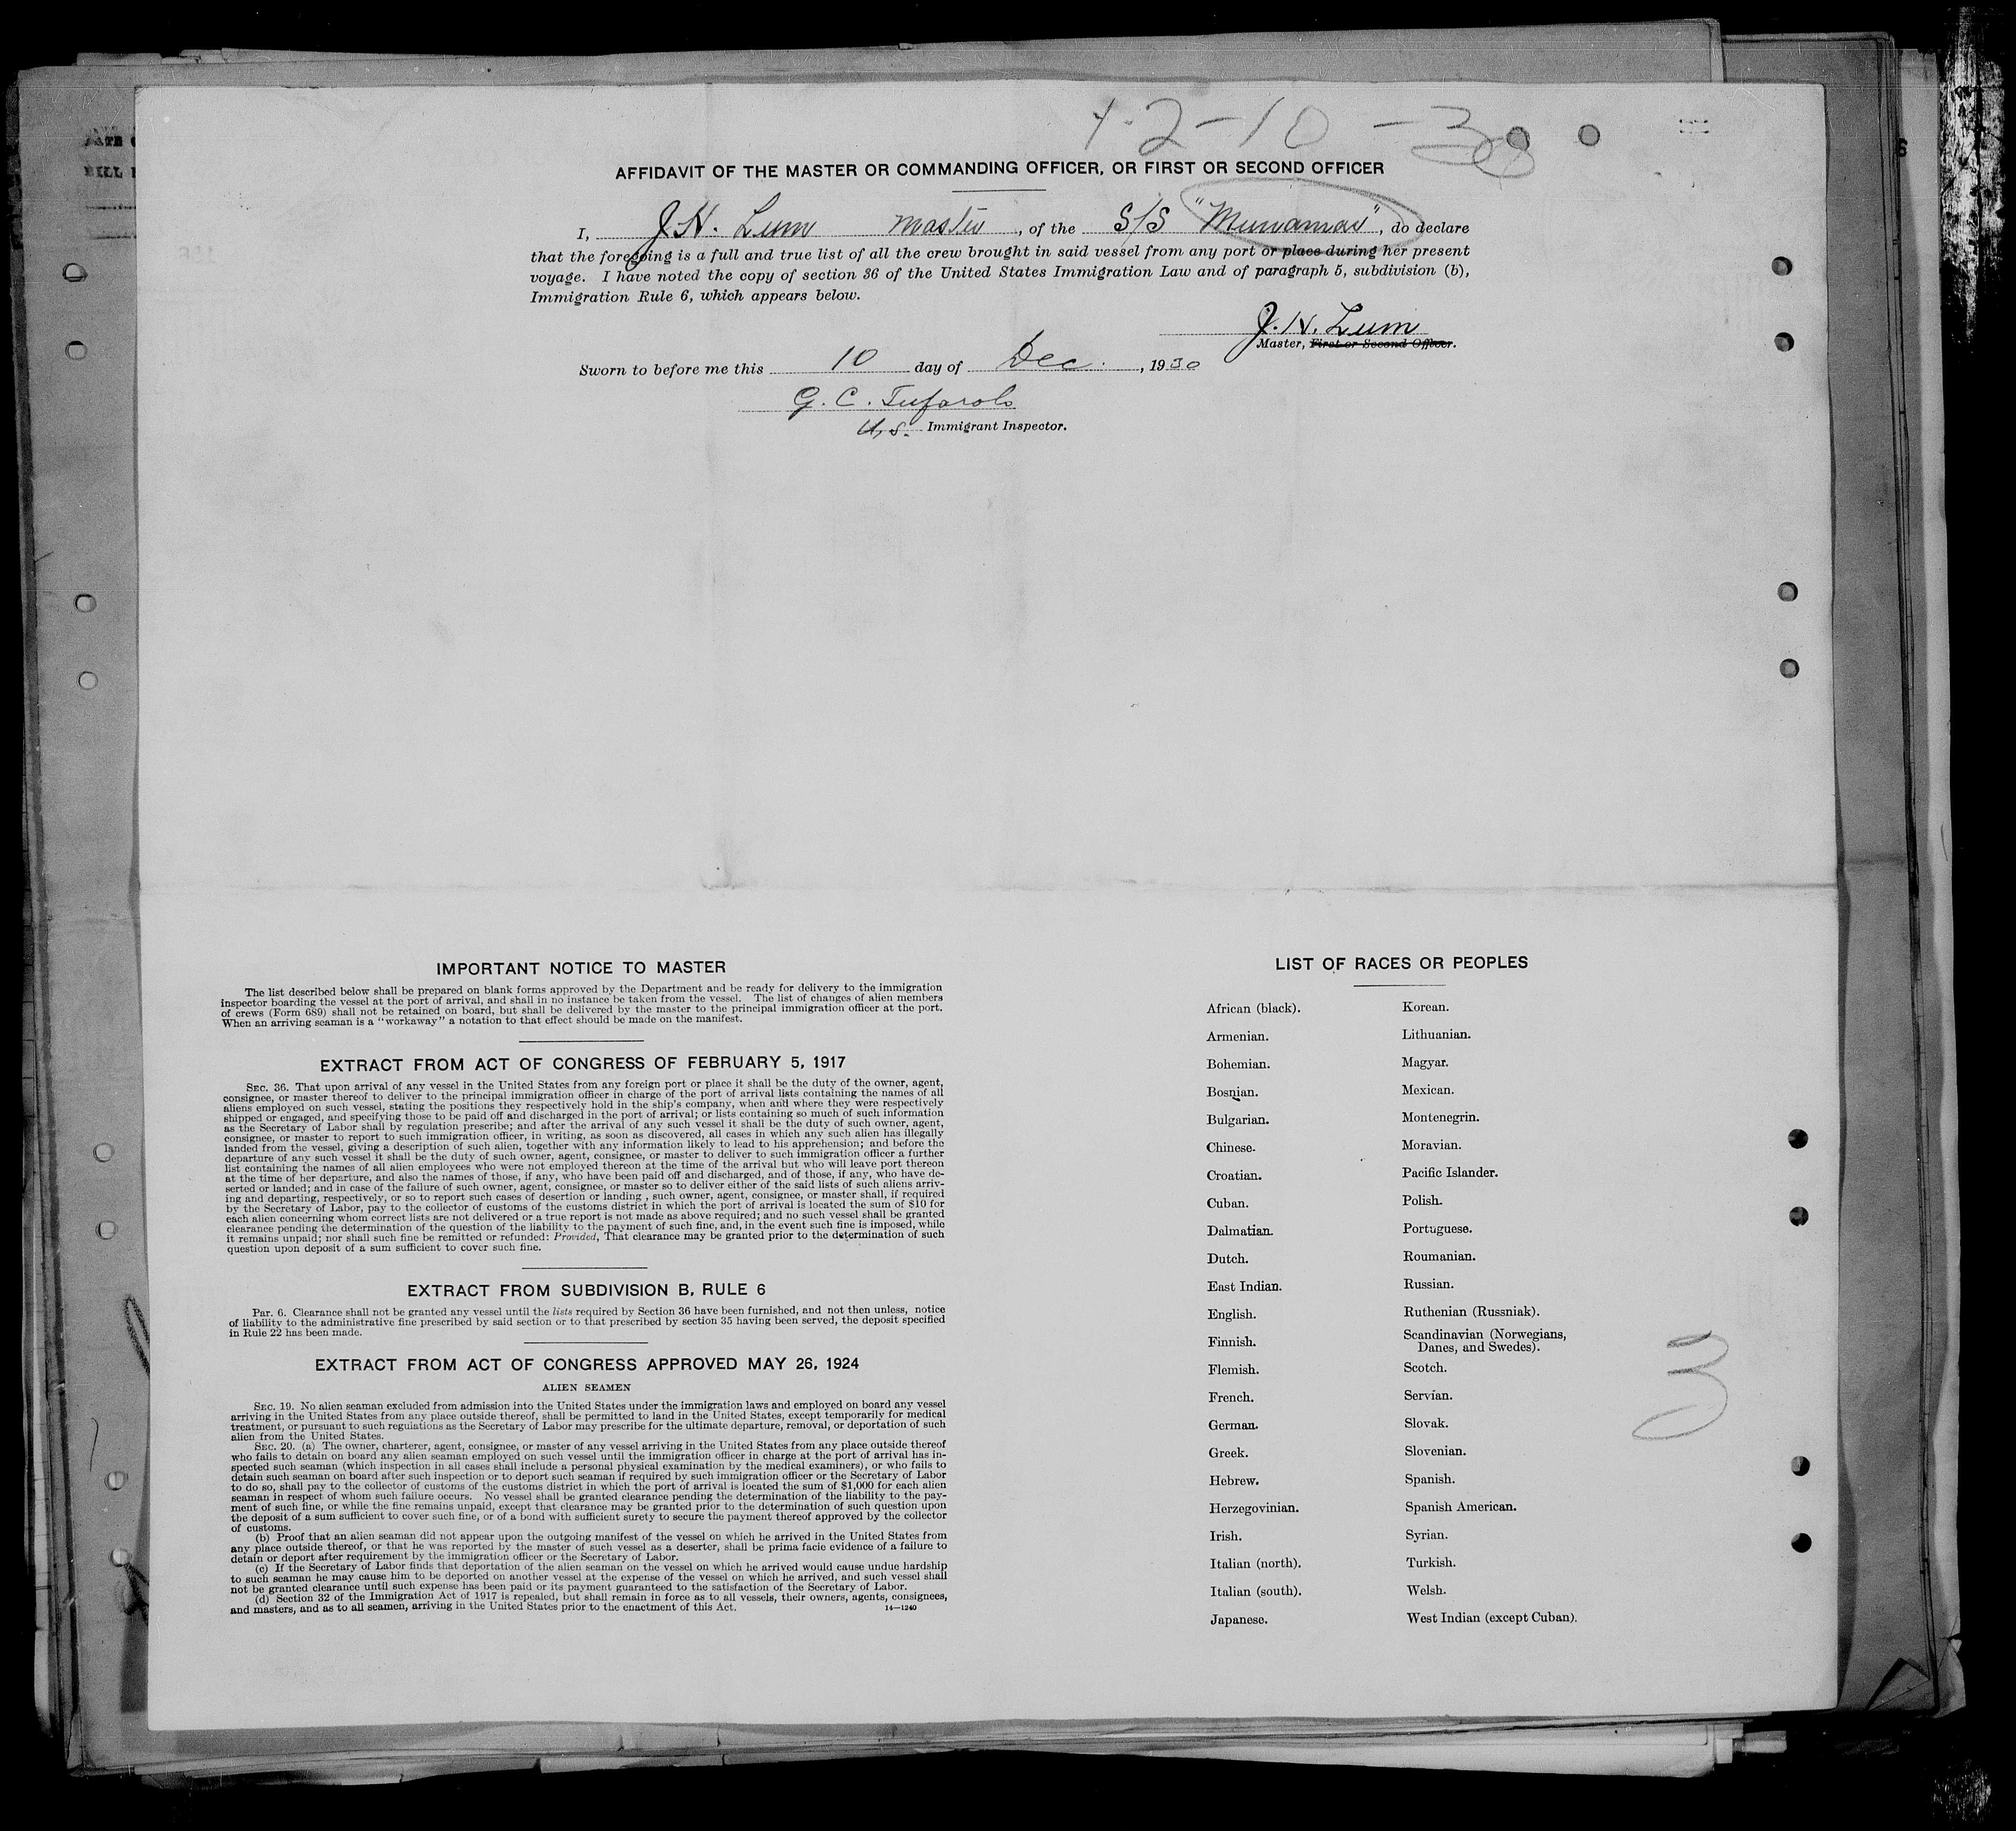 12-10-30
AFFIDAVIT OF THE MASTER OR COMMANDING OFFICER, OR FIRST OR SECOND OFFICER
I, J.H. Lum master, of the S/S "Munamar", do declare
that the foregoing is a full and true list of all the crew brought in said vessel from any port or place during her present
voyage. I have noted the copy of section 36 of the United States Immigration Law and of paragraph 5, subdivision (b),
Immigration Rule 6, which appears below.
J. H. Lum
Master, First or Second Officer.
Sworn to before me this 10 day of Dec., 1930
G. C.
U.S. Immigrant Inspector.
IMPORTANT NOTICE TO MASTER
The list described below shall be prepared on blank forms approved by the Department and be ready for delivery to the immigration
inspector boarding the vessel at the port of arrival, and shall in no instance be taken from the vessel. The list of changes of alien members
of crews (Form 689) shall not be retained on board, but shall be delivered by the master to the principal immigration officer at the port.
When an arriving seaman is a "workaway" a notation to that effect should be made on the manifest.
EXTRACT FROM ACT OF CONGRESS OF FEBRUARY 5, 1917
SEC. 36. That upon arrival of any vessel in the United States from any foreign port or place it shall be the duty of the owner, agent,
consignee, or master thereof to deliver to the principal immigration officer in charge of the port of arrival lists containing the names of all
aliens employed on such vessel, stating the positions they respectively hold in the ship's company, when and where they were respectively
shipped or engaged, and specifying those to be paid off and discharged in the port of arrival; or lists containing so much of such information
as the Secretary of Labor shall by regulation prescribe; and after the arrival of any such vessel it shall be the duty of such owner, agent,
consignee, or master to report to such immigration officer, in writing, as soon as discovered, all cases in which any such alien has illegally
landed from the vessel, giving a description of such alien, together with any information likely to lead to his apprehension; and before the
departure of any such vessel it shall be the duty of such owner, agent, consignee, or master to deliver to such immigration officer a further
list containing the names of all alien employees who were not employed thereon at the time of the arrival but who will leave port thereon
at the time of her departure, and also the names of those, if any, who have been paid off and discharged, and of those, if any, who have de-
serted or landed; and in case of the failure of such owner, agent, consignee, or master so to deliver either of the said lists of such aliens arriv-
ing and departing, respectively, or so to report such cases of desertion or landing , such owner, agent, consignee, or master shall, if required
by the Secretary of Labor, pay to the collector of customs of the customs district in which the port of arrival is located the sum of $10 for
each alien concerning whom correct lists are not delivered or a true report is not made as above required; and no such vessel shall be granted
clearance pending the determination of the question of the liability to the payment of such fine, and, in the event such fine is imposed, while
it remains unpaid; nor shall such fine be remitted or refunded: Provided, That clearance may be granted prior to the determination of such
question upon deposit of a sum sufficient to cover such fine.
EXTRACT FROM SUBDIVISION B, RULE 6
Par. 6. Clearance shall not be granted any vessel until the lists required by Section 36 have been furnished, and not then unless, notice
of liability to the administrative fine prescribed by said section or to that prescribed by section 35 having been served, the deposit specified
in Rule 22 has been made.
EXTRACT FROM ACT OF CONGRESS APPROVED MAY 26, 1924
ALIEN SEAMEN
SEC. 19. No alien seaman excluded from admission into the United States under the immigration laws and employed on board any vessel
arriving in the United States from any place outside thereof, shall be permitted to land in the United States, except temporarily for medical
treatment, or pursuant to such regulations as the Secretary of Labor may prescribe for the ultimate departure, removal, or deportation of such
alien from the United States.
SEC. 20. (a) The owner, charterer, agent, consignee, or master of any vessel arriving in the United States from any place outside thereof
who fails to detain on board any alien seaman employed on such vessel until the immigration officer in charge at the port of arrival has in-
spected such seaman (which inspection in all cases shall include a personal physical examination by the medical examiners), or who fails to
detain such seaman on board after such inspection or to deport such seaman if required by such immigration officer or the Secretary of Labor
to do so, shall pay to the collector of customs of the customs district in which the port of arrival is located the sum of $1,000 for each alien
seaman in respect of whom such failure occurs. No vessel shall be granted clearance pending the determination of the liability to the pay-
ment of such fine, or while the fine remains unpaid, except that clearance may be granted prior to the determination of such question upon
the deposit of a sum sufficient to cover such fine, or of a bond with sufficient surety to secure the payment thereof approved by the collector
of customs.
(b) Proof that an alien seaman did not appear upon the outgoing manifest of the vessel on which he arrived in the United States from
any place outside thereof, or that he was reported by the master of such vessel as a deserter, shall be prima facie evidence of a failure to
detain or deport after requirement by the immigration officer or the Secretary of Labor.
(c) If the Secretary of Labor finds that deportation of the alien seaman on the vessel on which he arrived would cause undue hardship
to such seaman he may cause him to be deported on another vessel at the expense of the vessel on which he arrived, and such vessel shall
not be granted clearance until such expense has been paid or its payment guaranteed to the satisfaction of the Secretary of Labor.
(d) Section 32 of the Immigration Act of 1917 is repealed, but shall remain in force as to all vessels, their owners, agents, consignees,
and masters, and as to all seamen, arriving in the United States prior to the enactment of this Act.
14—1240
LIST OF RACES OR PEOPLES
African (black).
Armenian.
Bohemian.
Bosnian.
Bulgarian.
Chinese.
Croatian.
Cuban.
Dalmatian.
Dutch.
East Indian.
English.
Finnish.
Flemish.
French.
German.
Greek.
Hebrew.
Herzegovinian.
Irish.
Italian (north).
Italian (south).
Japanese.
Korean.
Lithuanian.
Magyar.
Mexican.
Montenegrin.
Moravian.
Pacific Islander.
Polish.
Portuguese.
Roumanian.
Russian.
Ruthenian (Russniak).
Scandinavian (Norwegians,
Danes, and Swedes).
Scotch.
Servian.
Slovak.
Slovenian.
Spanish.
Spanish American.
Syrian.
Turkish.
Welsh.
West Indian (except Cuban).
3